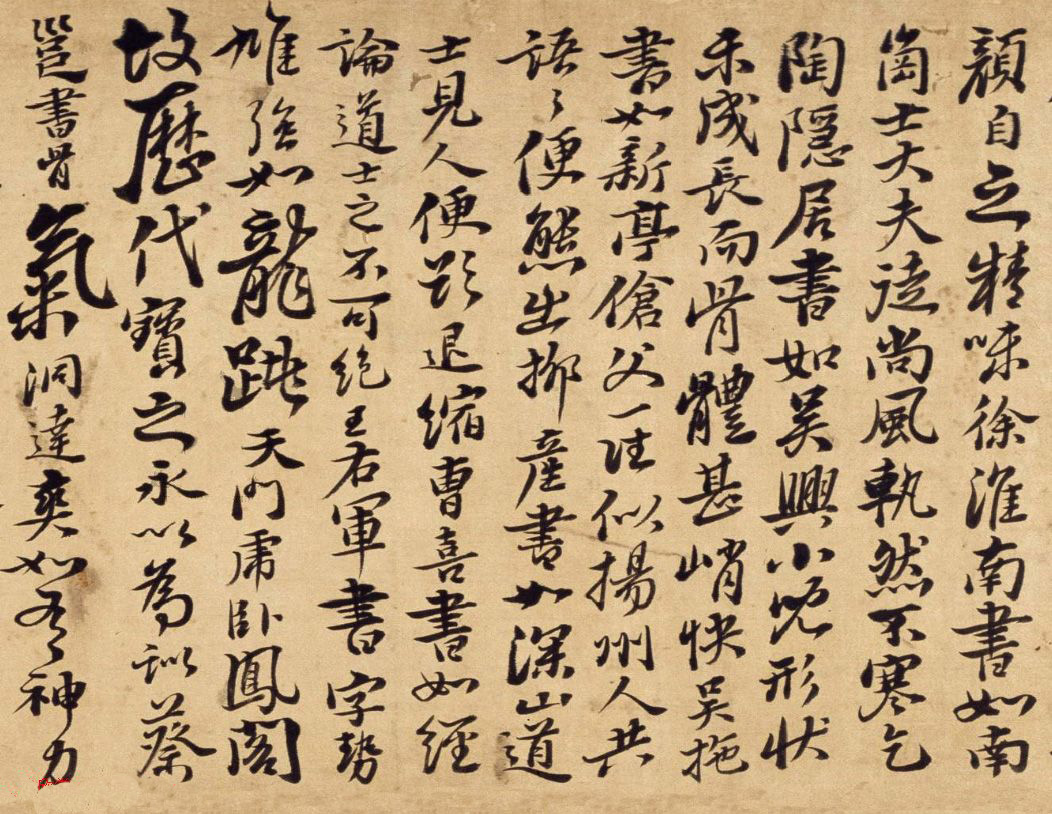 顏自之精味徐淮南書如南
崗士大夫徒尚風軌然不寒乞
陶隱居書如吴興小兒形狀
未成長而骨體甚峭快吴拖
書如新亭傖父一往似揚州人共
語々便態出柳產書如深山道
士見人便欲退縮曹喜書如經
論道士之不可絶王右軍書字勢
雄強如龍跳天門虎卧鳳閣
故歷代寶之永以為訓蔡
邕書骨氣洞達爽如有神力